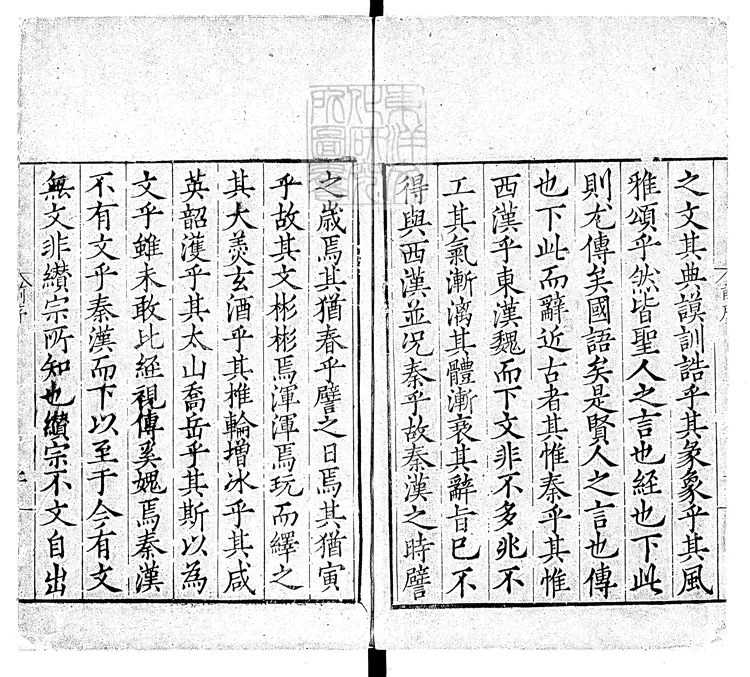 之文其典謨訓誥乎其彖象乎其風
雅頌乎然皆聖人之言也経也下此
則尤傳矣國語矣是賢人之言也傳
也下此而辭近古者其惟秦乎其惟
西漢乎東漢魏而下文非不多兆不
工其氣漸漓其體漸衰其辭旨已不
得與西漢並况秦乎故秦漢之時譬
之歳焉其猶春乎譬之日焉其猶寅
乎故其文彬彬焉渾渾焉玩而繹之
其大羮玄酒乎其椎輪增冰乎其咸
英韶濩乎其太山喬岳乎其斯以為
文乎雖未敢比経視傳奚媿焉秦漢
不有文乎秦漢而下以至于今有文
無文非纘宗所知也纘宗不文自出